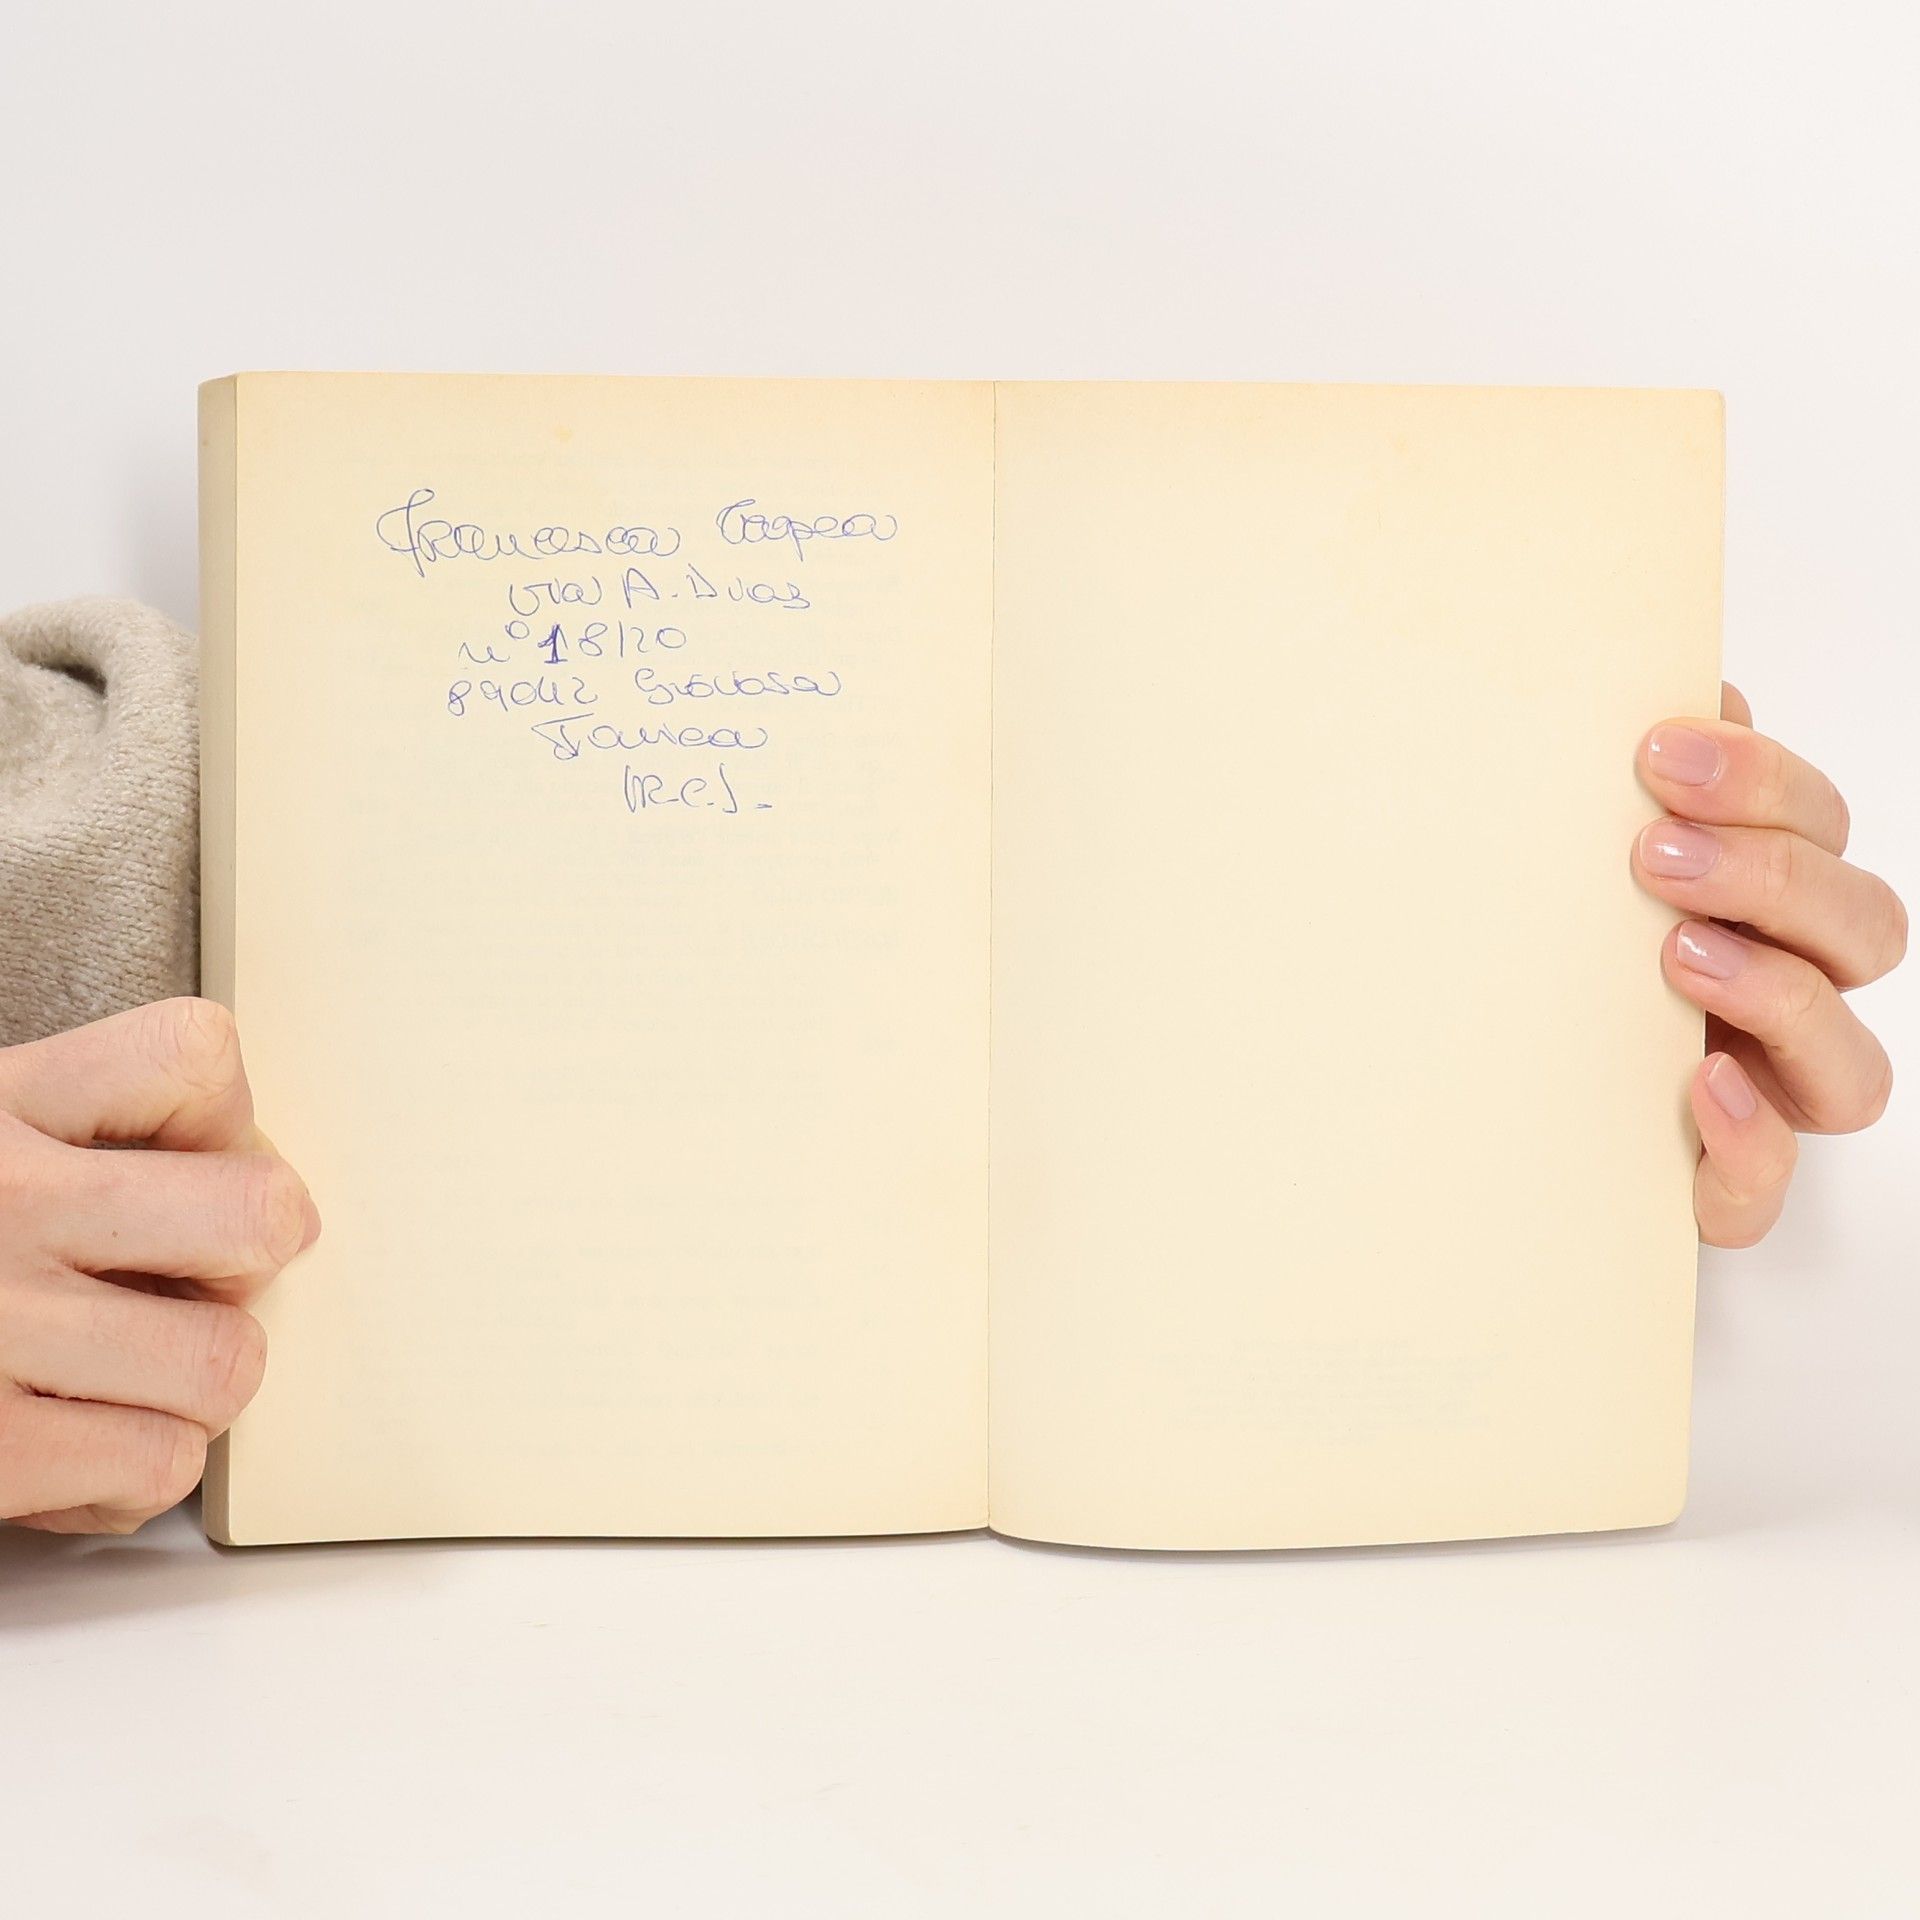 Francesca
via A. Diaz
n° 18/20
89042 Gioiosa
Ionica
(R.C.).